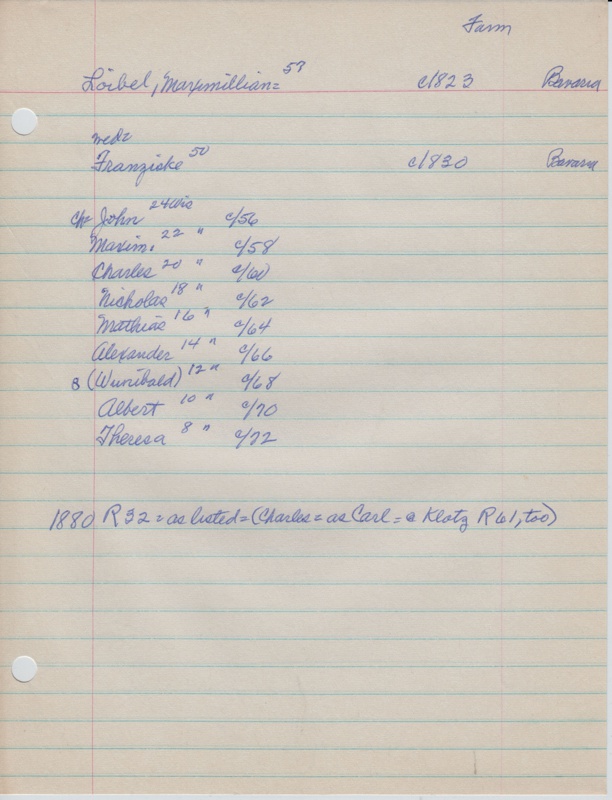 Farm
Loibel, Maximillian = 57 c/823 Bavaria
wed=
Franziske 50 c/830 Bavaria
ch= John 24 Wis c/56
Maxim. 22 " c/58
Charles 20 " c/60
Nicholas 18 " c/62
Mathias 16 " c/64
Alexander 14 " c/66
8 (Wunibald) 12 " c/68
Albert 10 " c/70
Theresa 8 " c/72
1880 R 32 = as listed = (Charles = as Carl = @ Klotz R 61, too)